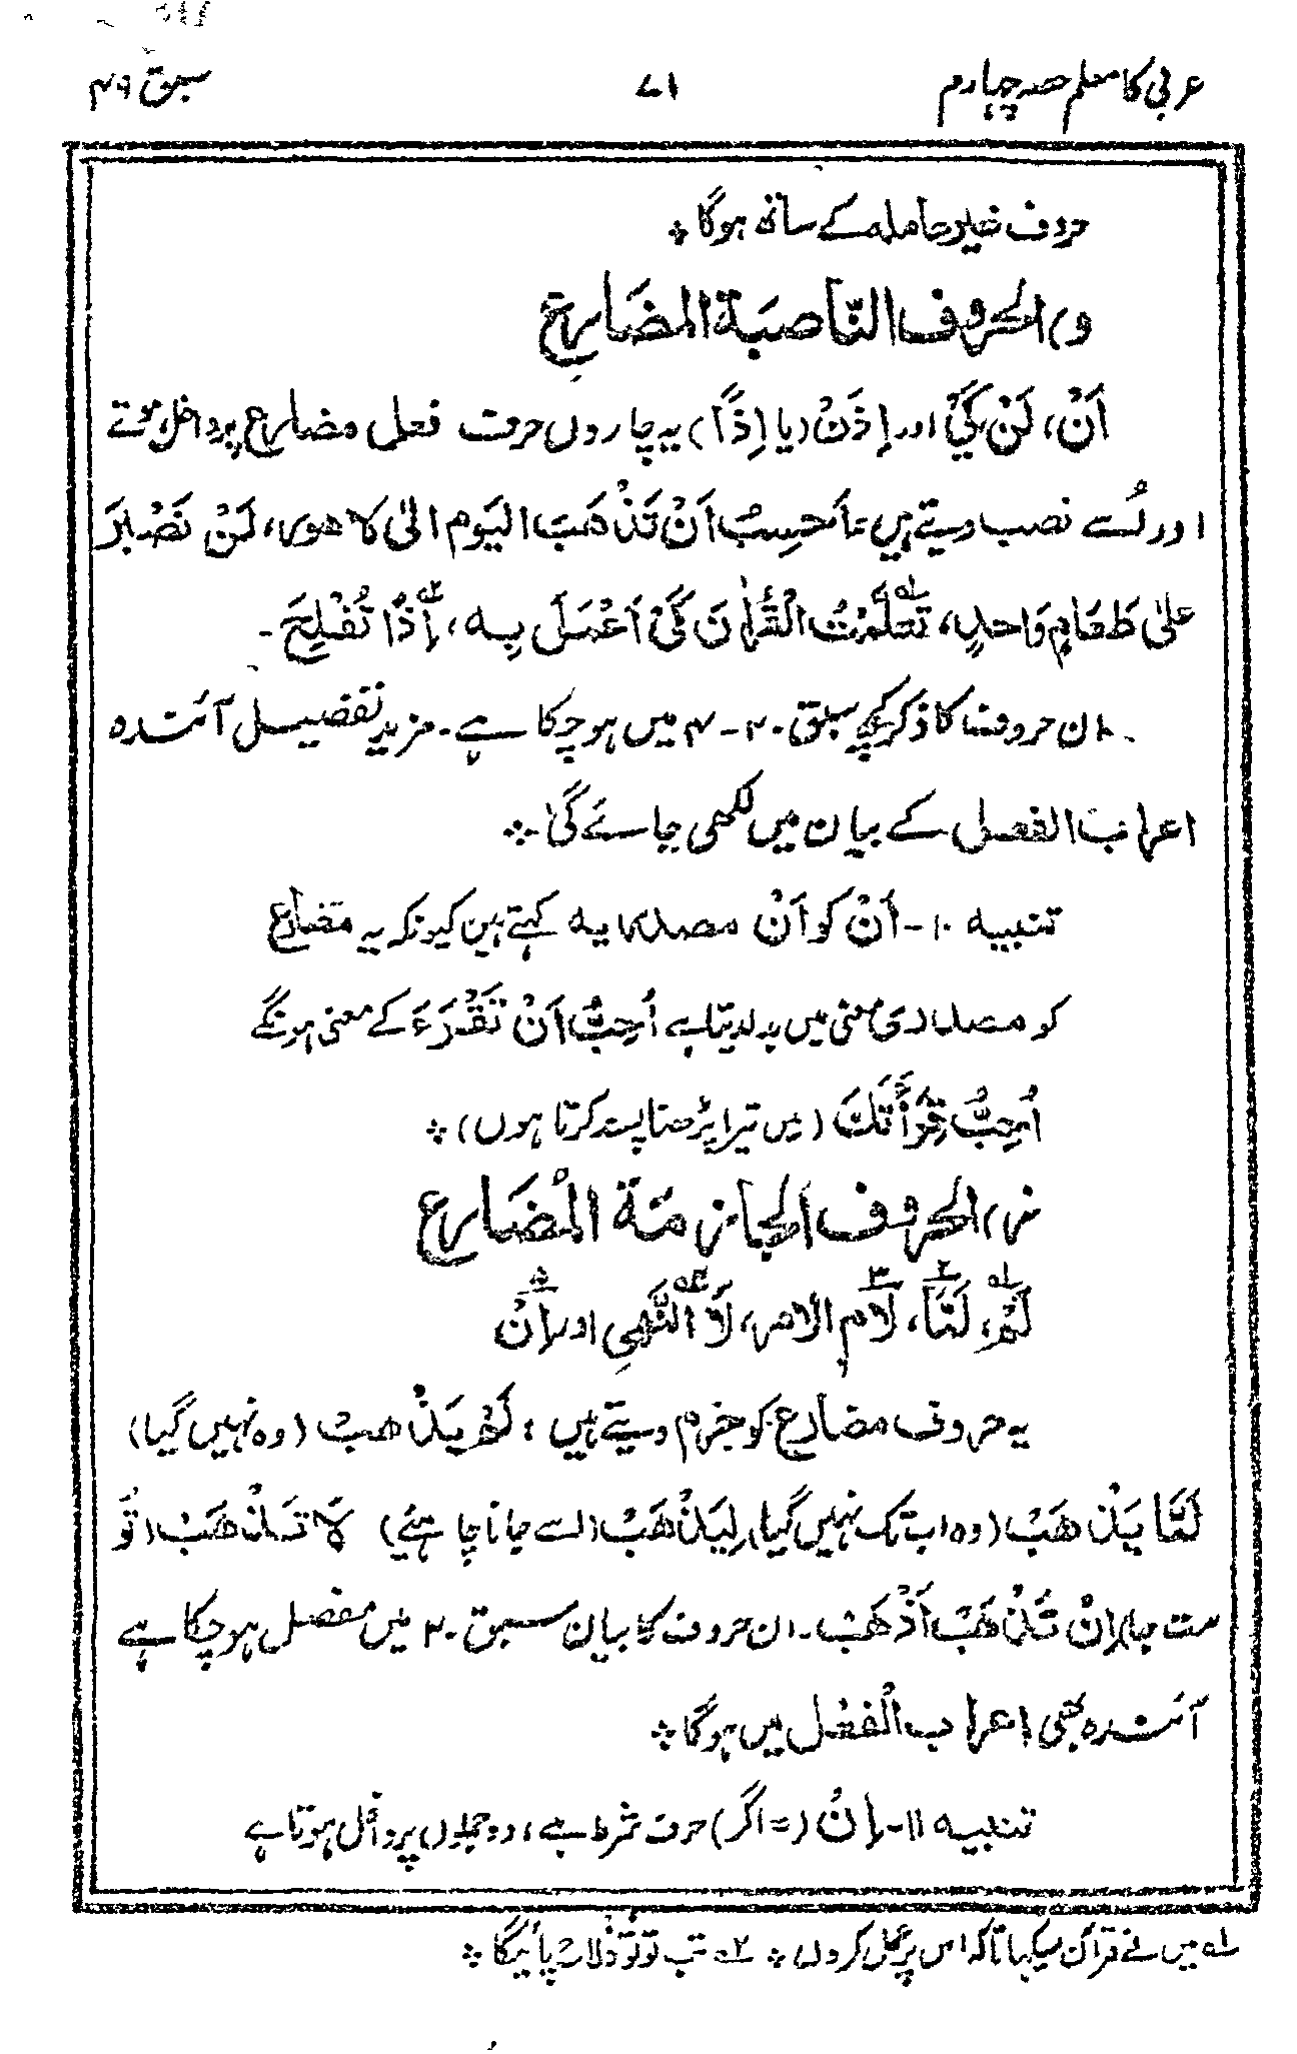 عربی کا معلم حصہ چہارم
۷۱
سبق ۴۹
حروف غیر عاملہ کے ساتھ ہوگا ÷
و، الحروف النّاصبَة المضَارِع
اَنْ، لَنْ كَيْ اور اِذَنْ (یا اِذًا) یہ چاروں حرف فعل مضارع پر داخل ہوتے
اور اُسے نصب دیتے ہیں: اَحسِبُ اَنْ تَذْهَبَ الیَوم الیٰ لاهور، لَنْ نَصْبِرَ
علیٰ طَعَامٍ وَاحدٍ، تَعَلَّمْتُ الْقُرْاٰنَ كَيْ اَعْمَلَ بِه، اِذًا تُفْلِحَ -
ان حروف کا ذکر پچھلے سبق ۲۰-۴ میں ہوچکا ہے۔ مزید تفصیل آئندہ
اعراب الفعل کے بیان میں لکھی جائے گی ÷
تنبیہ ۱۰- اَنْ کو اَنْ مصدریہ کہتے ہیں کیونکہ یہ مضارع
کو مصدری معنی میں بدل دیتا ہے اُحِبُّ اَنْ تَقْرَءَ کے معنی ہونگے
اُحِبُّ قِرَأَتَكَ (میں تیرا پڑھنا پسند کرتا ہوں) ÷
ز، الحروف الجازمَة الْمُضَارِع
لَمْ، لَمَّا، لَام الامر، لَا النَّهيِ اور اِنْ
یہ حروف مضارع کو جزم دیتے ہیں: لَمْ يَذْهبْ (وہ نہیں گیا)
لَمَّا يَذْهَبْ (وہ اب تک نہیں گیا) لِيَذْهَبْ (اسے جانا چاہئے) لَا تَذْهَبْ (تُو
مت جا) اِنْ تَذْهَبْ اَذْهَبْ۔ ان حروف کا بیان سبق ۲۰ میں مفصل ہوچکا ہے
آئندہ بھی اعراب الْفعْل میں ہوگا ÷
تنبیہ ۱۱- اِنْ (= اگر) حرف شرط ہے، دو جملوں پر داخل ہوتا ہے
۱ میں نے قرآن سیکھا تاکہ اس پر عمل کروں ÷ ۲ تب تو تُو فلاح پائیگا ÷